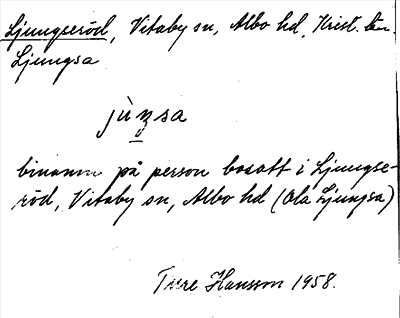 Ljungseröd, Vitaby sn, Albo hd, Krist. län.
Ljungsa
jùŋsa
binamn på person bosatt i Ljungse-
röd, Vitaby sn, Albo hd (Ola Ljungsa)
Ture Hansson 1958.